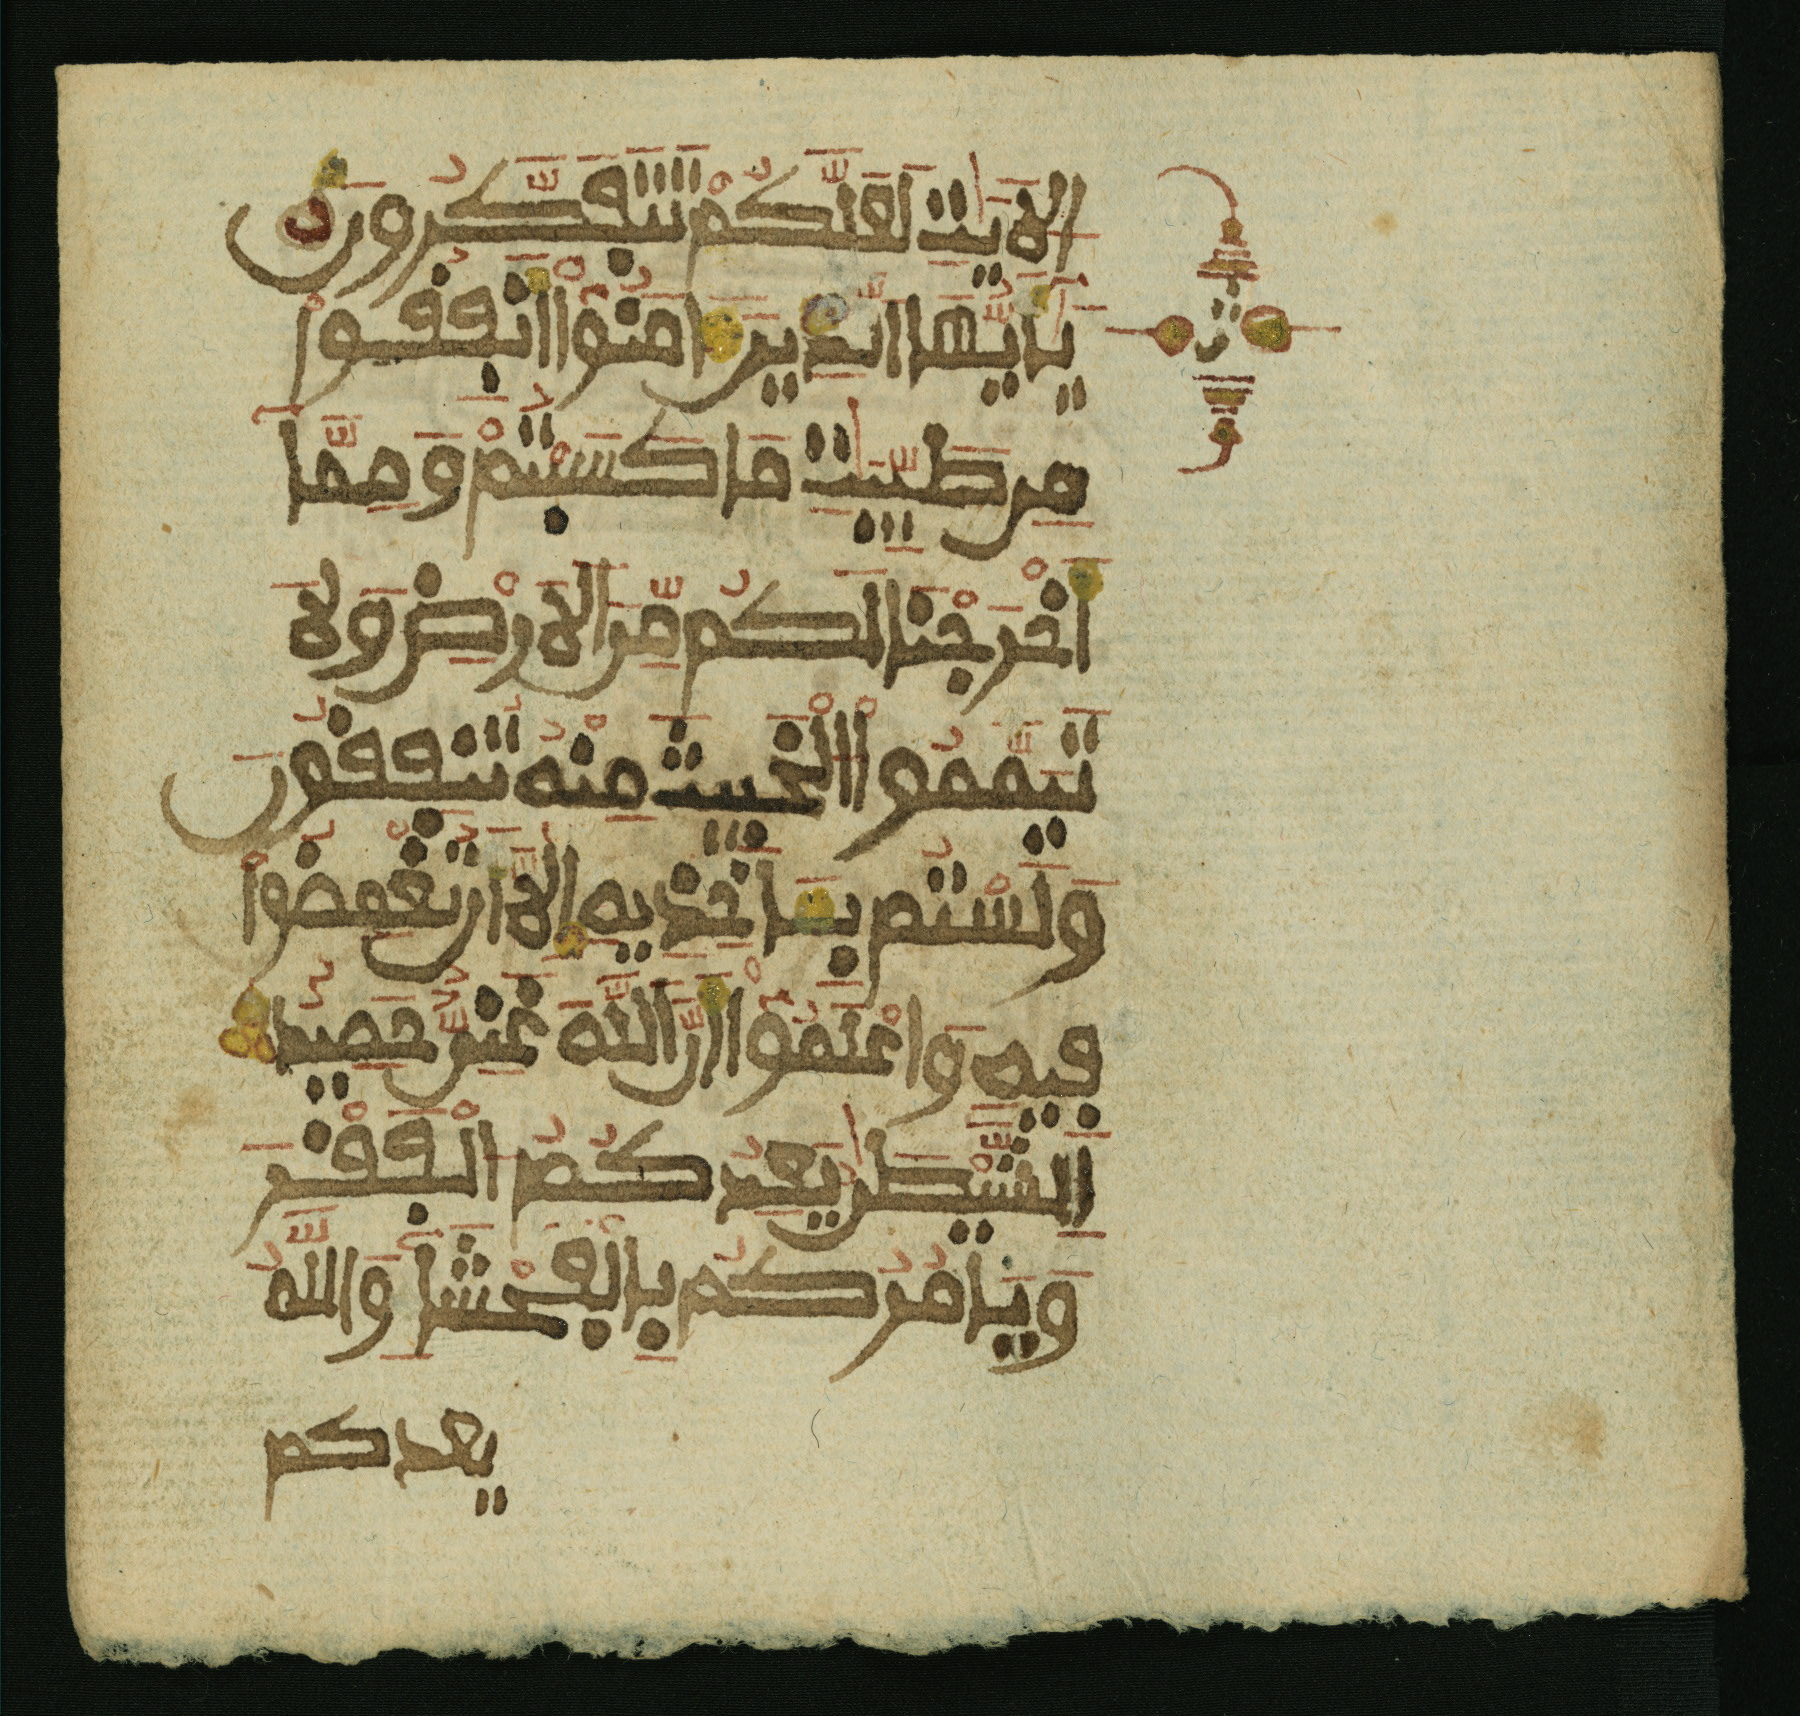 الاَيَٰتِ لَعَلَّكُمْ تَتَفَكَّرُونَ
يَٰأَيُّهَا الذِينَ ءَامَنُوٓاْ أَنفِقُواْ
مِن طَيِّبَٰتِ مَا كَسَبْتُمْ وَمِمَّآ
أَخْرَجْنَا لَكُم مِّنَ الاَرْضِ وَلَا
تَيَمَّمُواْ الْخَبِيثَ مِنْهُ تُنفِقُونَ
وَلَسْتُم بِـَٔاخِذِيهِ إِلَّآ أَن تُغْمِضُواْ
فِيهِ وَاعْلَمُوٓاْ أَنَّ اللَّهَ غَنِيٌّ حَمِيدٌ
الشَّيْطَٰنُ يَعِدُكُمُ الْفَقْرَ
وَيَامُرُكُم بِالْفَحْشَآءِ وَاللَّهُ
يعدكم